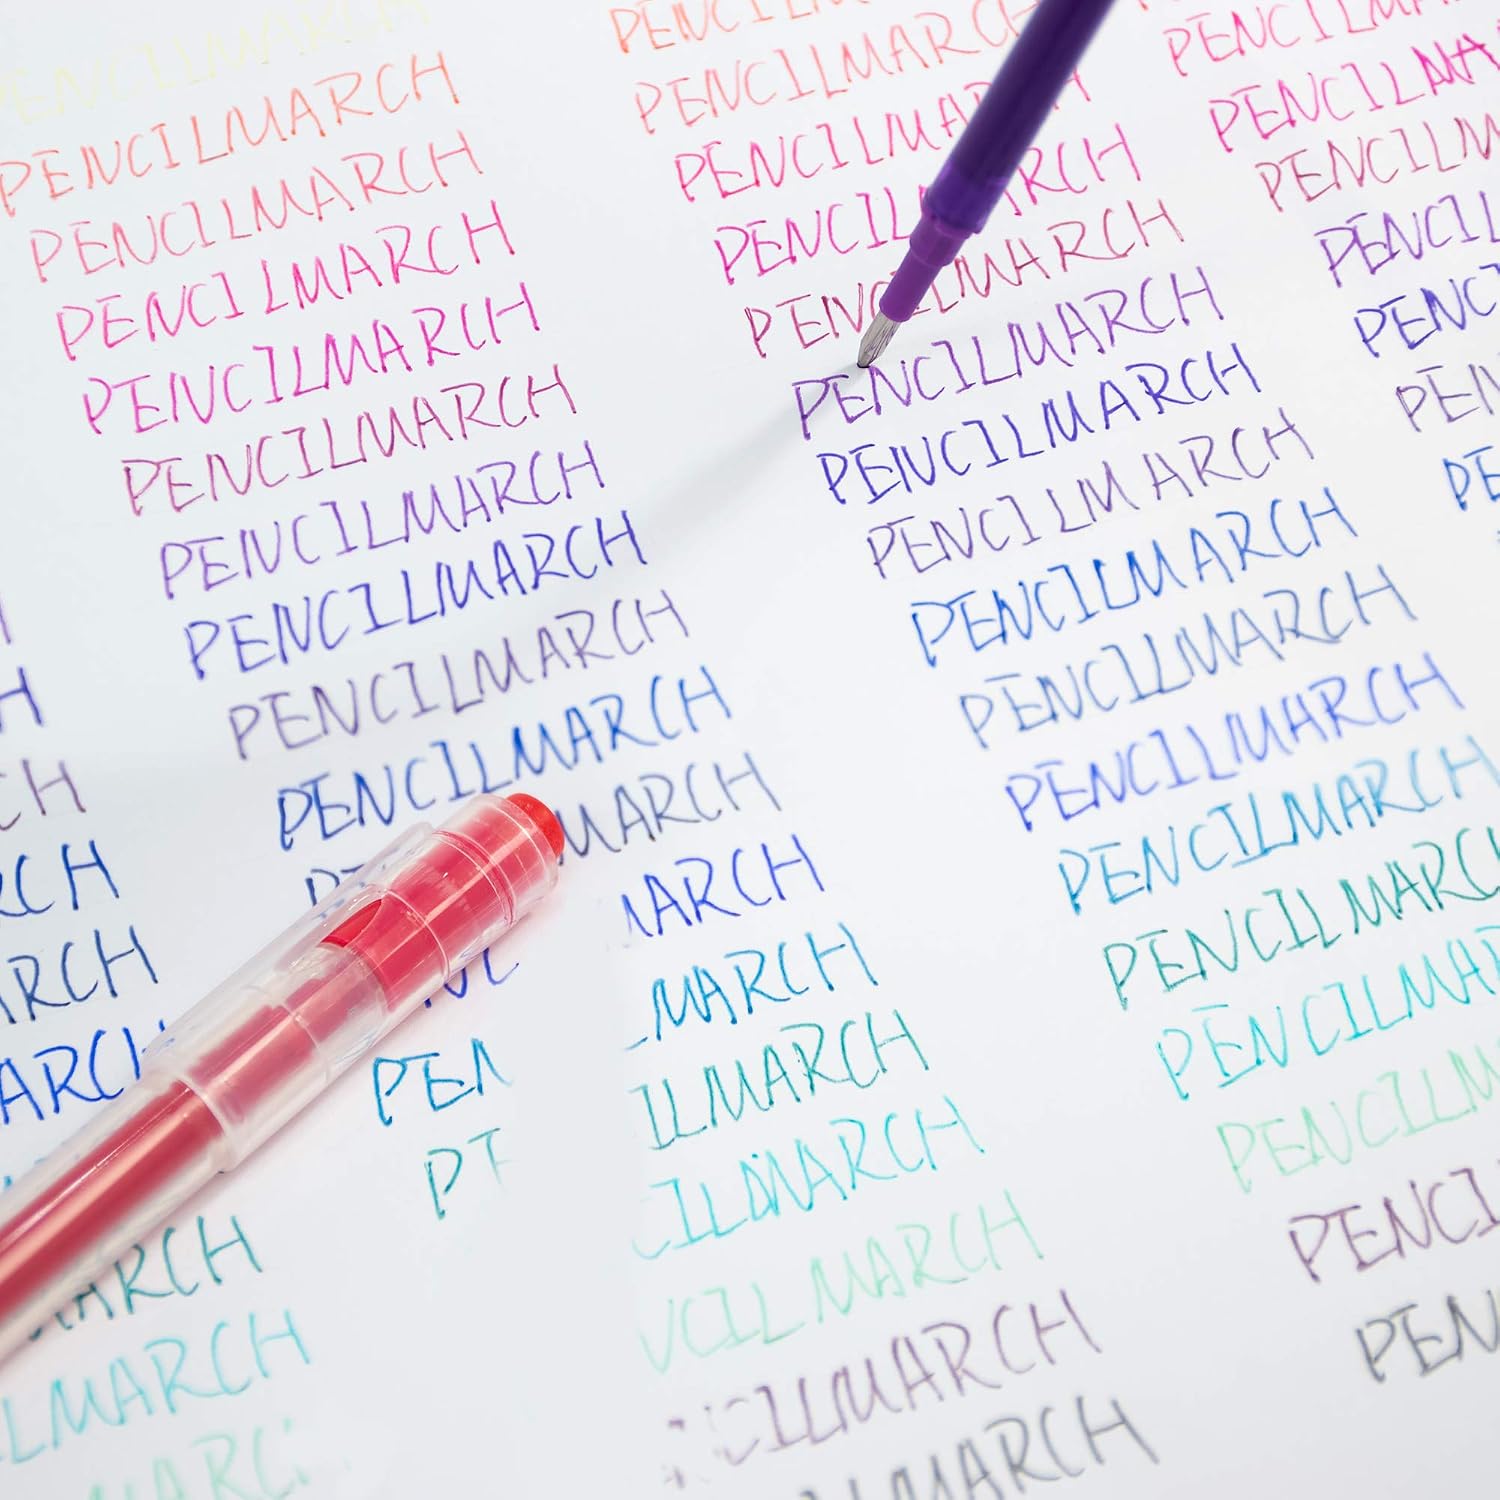 H
H
CH
RCH
RCH
ARCH
ARCH
LMARCH
MARC
PENCILMARCH
PENCILMARCH
PENCILMARCH
PENCILMARCH
PENCILMARCH
PENCILMARCH
PENCILMARCH
PENCILMARCH
PENCILMARCH
PENCILMARCH
P MARCH
NC MARCH
PEN MARCH
P ILMARCH
CILMARCH
CILMARCH
CILMARCH
MARCH
PENCILM
PENCILMARCH
PENCILMA
PENCIL RCH
PENCILMARCH
PENCILMARCH
PENCILMARCH
PENCILMARCH
PENCILMARCH
PENCILMARCH
PENCILMARCH
PENCILMARCH
PENCILMARCH
PENCILMAR
PENCILM
PENCI
PEN
PENCILMAR
PENCILMA
PENCILM
PENCIL
PENC
PEN
PE